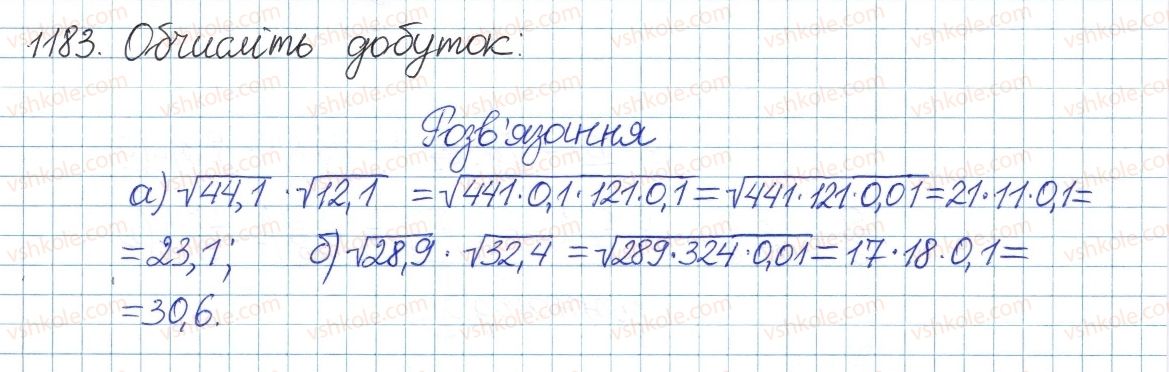 1183. Обчисліть добуток:
Розв'язання
а) √44,1 · √12,1 = √441·0,1·121·0,1 = √441·121·0,01 = 21·11·0,1 =
= 23,1; б) √28,9 · √32,4 = √289·324·0,01 = 17·18·0,1 =
= 30,6.